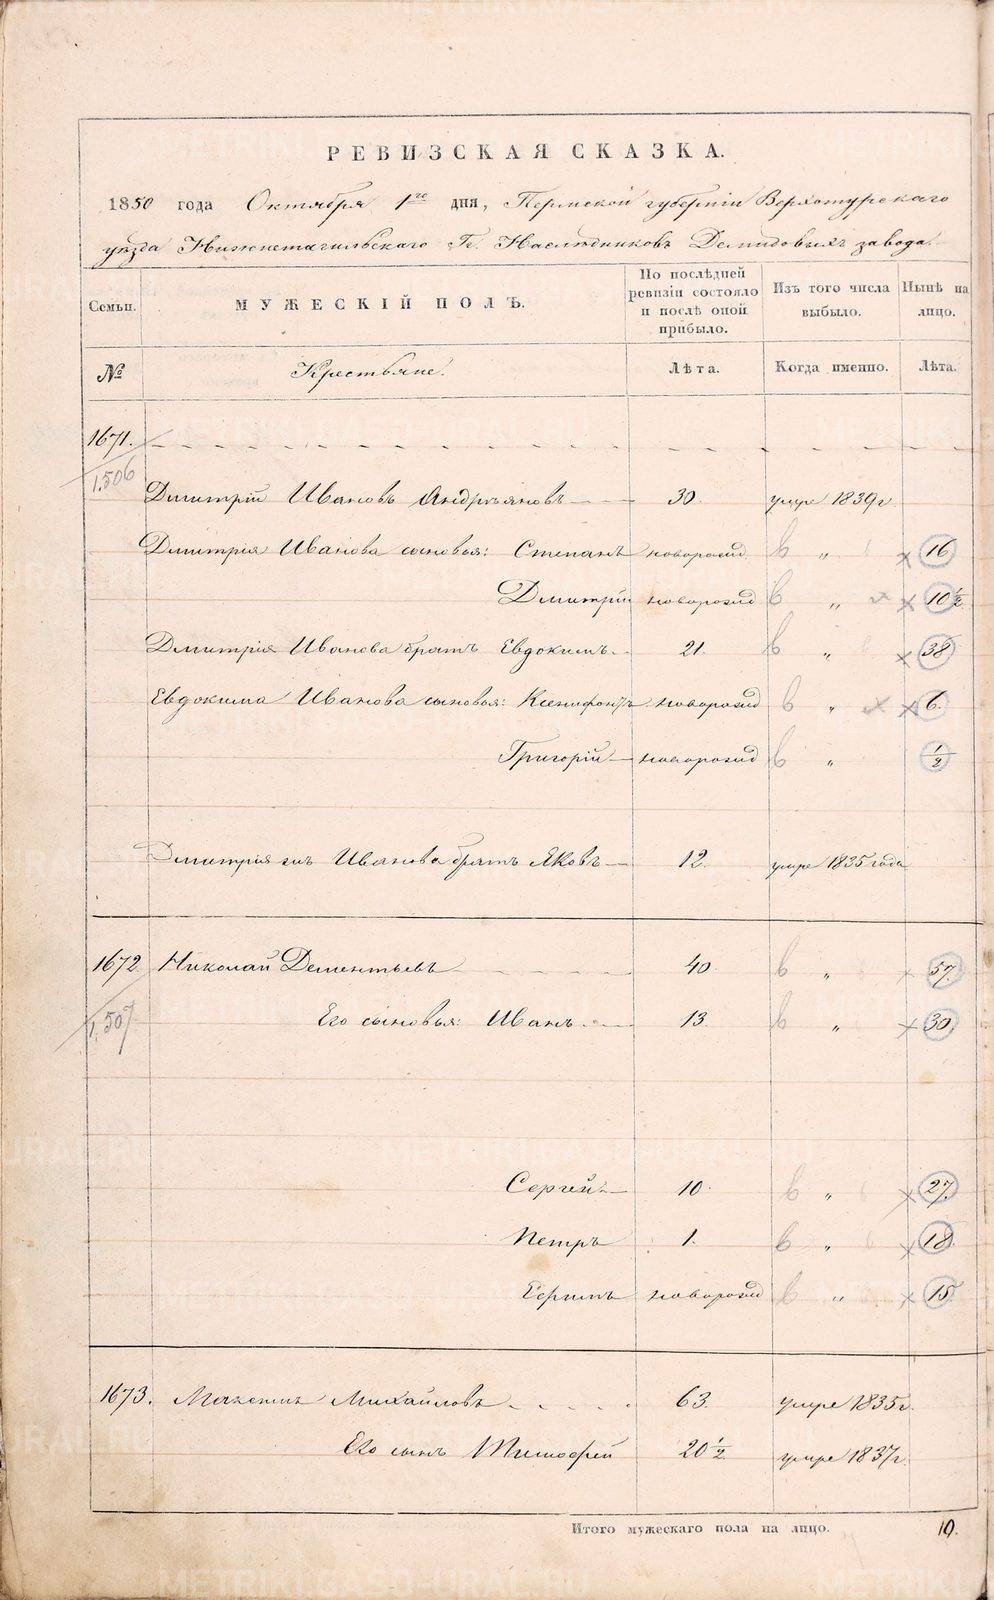 РЕВИЗСКАЯ СКАЗКА.
1850 года Октября 1го дня, Пермской губернiи Верхотурскаго
уѣзда Нижнетагильскаго Гг. Наслѣдниковъ Демидовыхъ завода.
Семьи. МУЖЕСКIЙ ПОЛЪ. По послѣдней ревизiи состояло и послѣ оной прибыло. Изъ того числа выбыло. Нынѣ на лицо.
№ Крестьяне. Лѣта. Когда именно. Лѣта.
1671.
1.506
Дмитрiй Ивановъ Андреяновъ 30. умре 1839 г
Дмитрiя Иванова сыновья: Степанъ новорожд. в „ 16
Дмитрiй новорожд в „ 10 1/2
Дмитрiя Иванова братъ Евдокимъ 21. в „ 38
Евдокима Иванова сыновья: Ксенифонтъ новорожд в „ 6.
Григорiй новорожд в „ 1/2
Дмитрiя жъ Иванова братъ Яковъ 12. умре 1835 года
1672. Николай Дементьевъ 40. в „ 57.
1.507 Его сыновья: Иванъ 13. в „ 30.
Сергей 10. в „ 27.
Петръ 1. в „ 18.
новорожд в „ 15.
1673. Максимъ Михайловъ 63. умре 1835 г.
Его сынъ Тимофей 20 1/2 умре 1837 г.
Итого мужескаго пола на лицо. 10.
METRIKI.GASO-URAL.RU